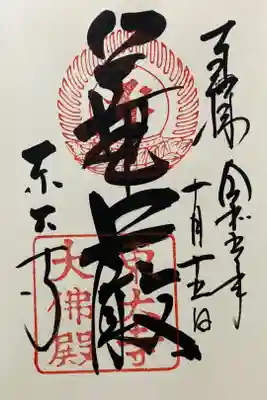 奉拝
令和五年
十月十五日
華嚴
東大寺
東大寺
大佛殿